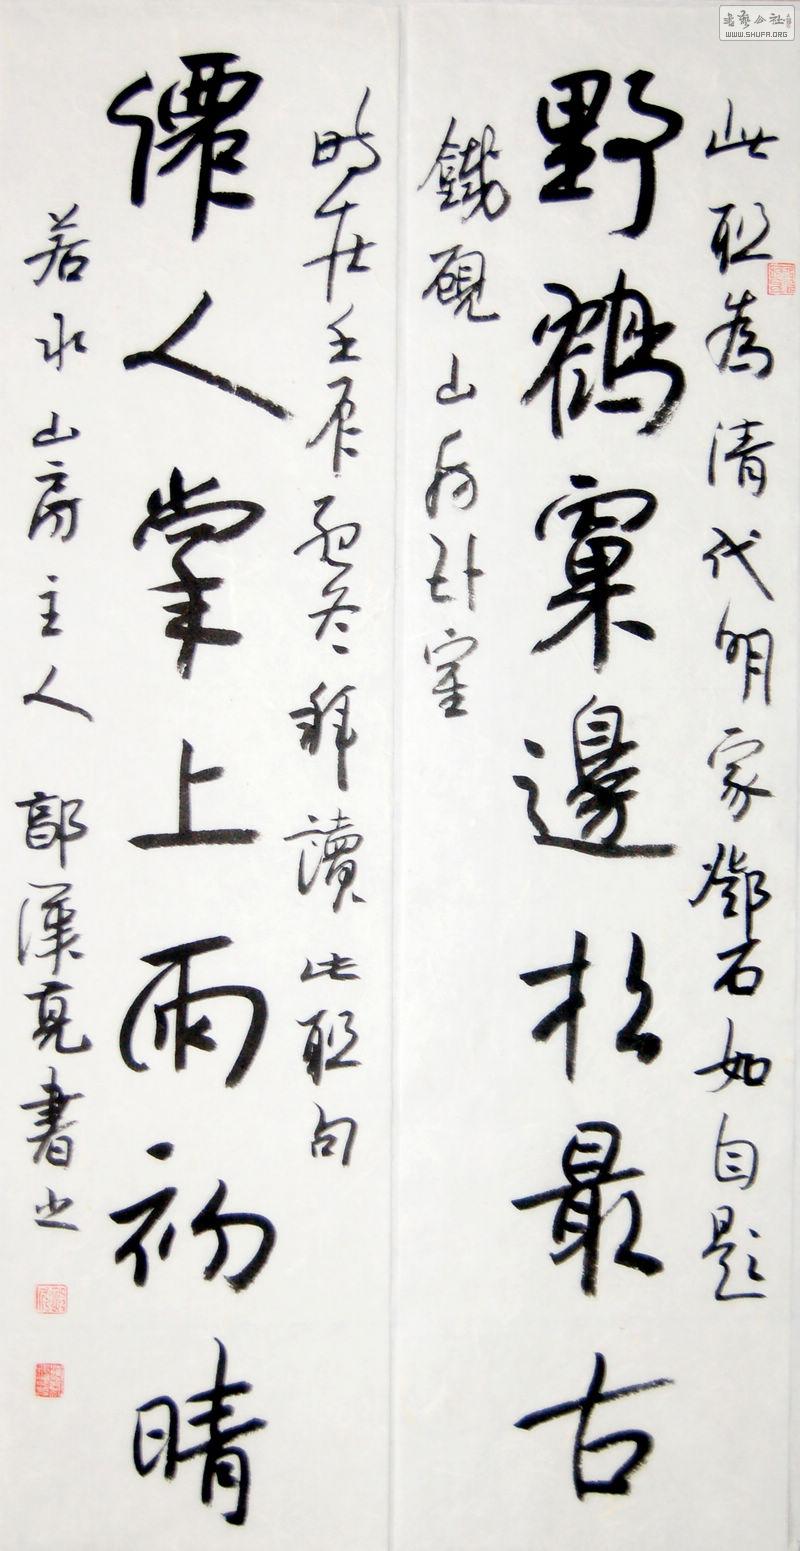 此聯為清代明家鄧石如自題
野鶴窠邊松最古
鐵硯山房卧室
時在壬辰孟冬拜讀此聯句
僊人掌上雨初晴
若水山房主人郭漢亮書之
書藝公社
WWW.SHUFA.ORG